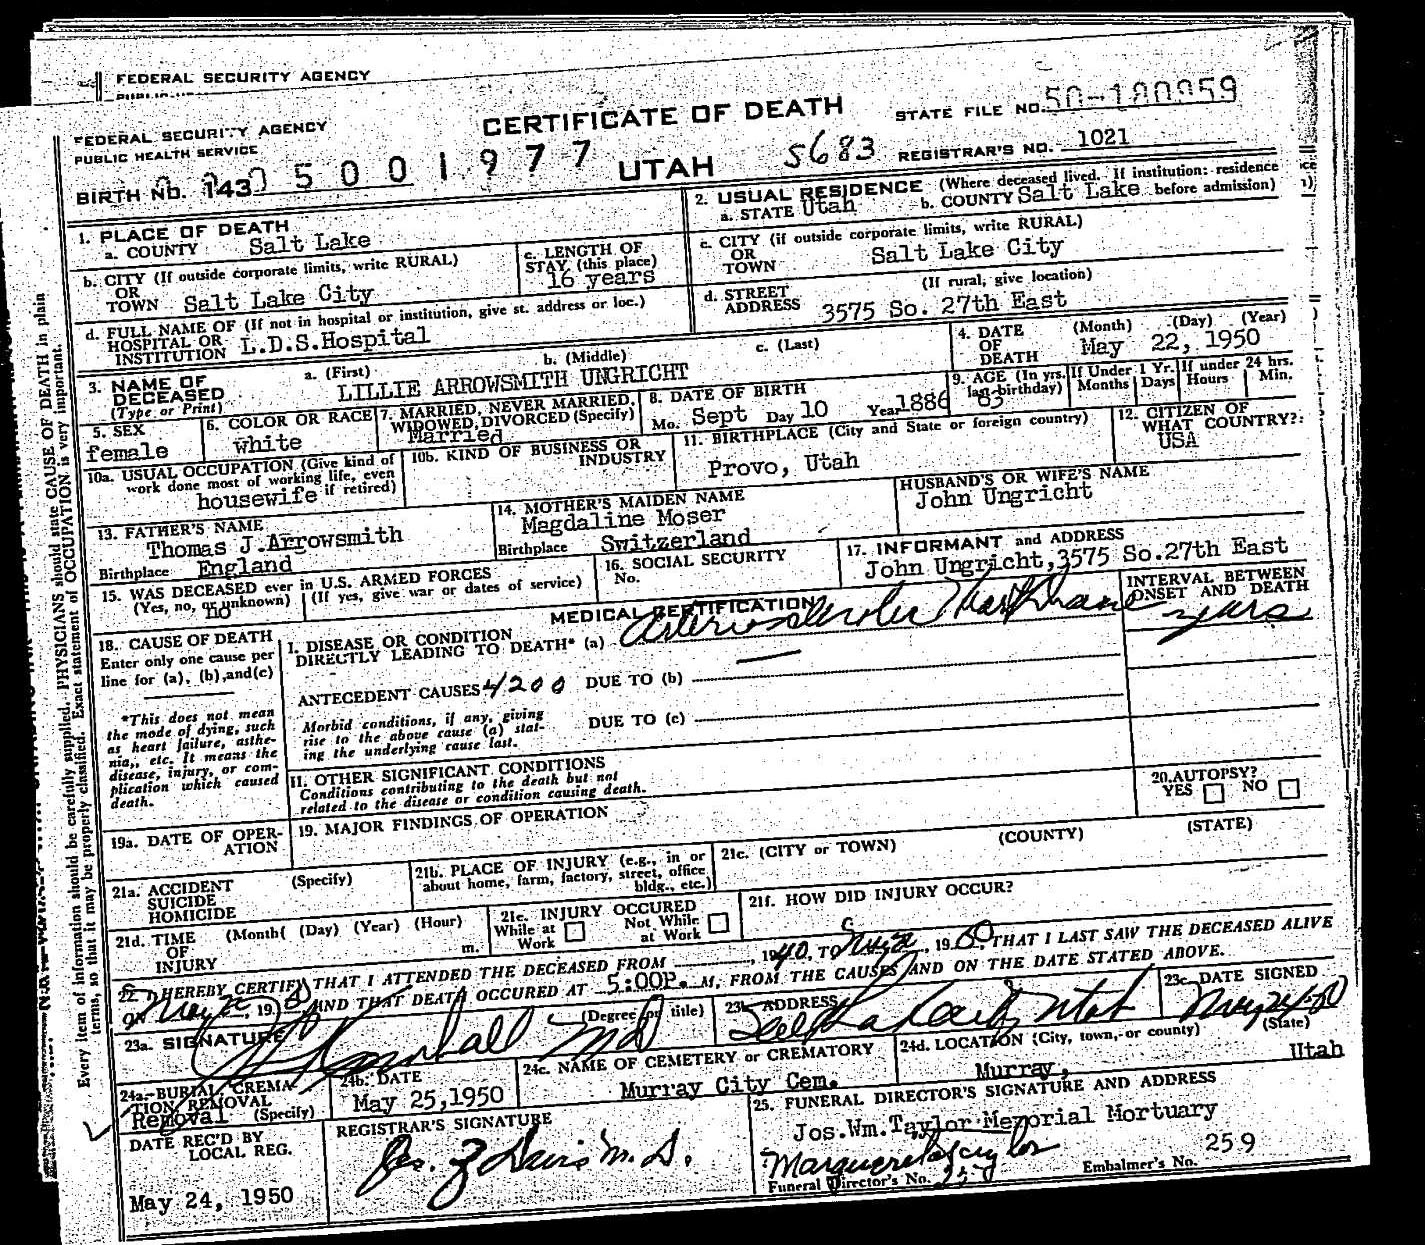 FEDERAL SECURITY AGENCY
FEDERAL SECURITY AGENCY
PUBLIC HEALTH SERVICE
CERTIFICATE OF DEATH
STATE FILE NO. 50-180959
BIRTH NO. 143
5001977
UTAH
5683
REGISTRAR'S NO. 1021
1. PLACE OF DEATH
a. COUNTY Salt Lake
2. USUAL RESIDENCE (Where deceased lived. If institution: residence
a. STATE Utah b. COUNTY Salt Lake before admission)
b. CITY (If outside corporate limits, write RURAL)
OR
TOWN Salt Lake City
c. LENGTH OF
STAY (this place)
16 years
c. CITY (if outside corporate limits, write RURAL)
OR
TOWN Salt Lake City
d. FULL NAME OF (If not in hospital or institution, give st. address or loc.)
HOSPITAL OR
INSTITUTION L.D.S.Hospital
d. STREET (If rural, give location)
ADDRESS 3575 So. 27th East
3. NAME OF
DECEASED
(Type or Print)
a. (First) b. (Middle) c. (Last)
LILLIE ARROWSMITH UNGRICHT
4. DATE (Month) (Day) (Year)
OF
DEATH May 22, 1950
5. SEX
female
6. COLOR OR RACE
white
7. MARRIED, NEVER MARRIED,
WIDOWED, DIVORCED (Specify)
Married
8. DATE OF BIRTH
Mo. Sept Day 10 Year 1886
9. AGE (In yrs. last birthday)
63
If Under 1 Yr.
Months Days
If under 24 hrs.
Hours Min.
10a. USUAL OCCUPATION (Give kind of
work done most of working life, even
if retired)
housewife
10b. KIND OF BUSINESS OR
INDUSTRY
11. BIRTHPLACE (City and State or foreign country)
Provo, Utah
12. CITIZEN OF
WHAT COUNTRY?:
USA
13. FATHER'S NAME
Thomas J.Arrowsmith
Birthplace England
14. MOTHER'S MAIDEN NAME
Magdaline Moser
Birthplace Switzerland
HUSBAND'S OR WIFE'S NAME
John Ungricht
15. WAS DECEASED ever in U.S. ARMED FORCES
(Yes, no, or unknown) (If yes, give war or dates of service)
no
16. SOCIAL SECURITY
No.
17. INFORMANT and ADDRESS
John Ungricht,3575 So.27th East
MEDICAL CERTIFICATION
INTERVAL BETWEEN
ONSET AND DEATH
18. CAUSE OF DEATH
Enter only one cause per
line for (a), (b),and(c)
I. DISEASE OR CONDITION
DIRECTLY LEADING TO DEATH* (a)
years
ANTECEDENT CAUSES 4200 DUE TO (b)
*This does not mean
the mode of dying, such
as heart failure, asthe-
nia,, etc. It means the
disease, injury, or com-
plication which caused
death.
Morbid conditions, if any, giving
rise to the above cause (a) stat-
ing the underlying cause last.
DUE TO (c)
II. OTHER SIGNIFICANT CONDITIONS
Conditions contributing to the death but not
related to the disease or condition causing death.
20.AUTOPSY?
YES NO
19a. DATE OF OPER-
ATION
19. MAJOR FINDINGS OF OPERATION
21a. ACCIDENT (Specify)
SUICIDE
HOMICIDE
21b. PLACE OF INJURY (e.g., in or
about home, farm, factory, street, office
bldg., etc.)
21c. (CITY or TOWN) (COUNTY) (STATE)
21d. TIME (Month( (Day) (Year) (Hour)
OF
INJURY m.
21e. INJURY OCCURED
While at Work
Not While at Work
21f. HOW DID INJURY OCCUR?
22. I HEREBY CERTIFY THAT I ATTENDED THE DECEASED FROM , 1940, TO , 1950 THAT I LAST SAW THE DECEASED ALIVE
ON May 22, 1950 AND THAT DEATH OCCURED AT 5:00P. M, FROM THE CAUSES AND ON THE DATE STATED ABOVE.
23a. SIGNATURE (Degree or title)
MD
23b. ADDRESS
Salt Lake City Utah
23c. DATE SIGNED
May 24-50
24a.-BURIAL, CREMA-
TION, REMOVAL
(Specify)
Removal
24b. DATE
May 25,1950
24c. NAME OF CEMETERY or CREMATORY
Murray City Cem.
24d. LOCATION (City, town, or county) (State)
Murray, Utah
DATE REC'D BY
LOCAL REG.
May 24, 1950
REGISTRAR'S SIGNATURE
M.D.
25. FUNERAL DIRECTOR'S SIGNATURE AND ADDRESS
Jos.Wm.Taylor Memorial Mortuary
Marguerite Taylor
Funeral Director's No.
Embalmer's No. 259
Every item of information should be carefully supplied. PHYSICIANS should state CAUSE OF DEATH in plain
terms, so that it may be properly classified. Exact statement of OCCUPATION is very important.